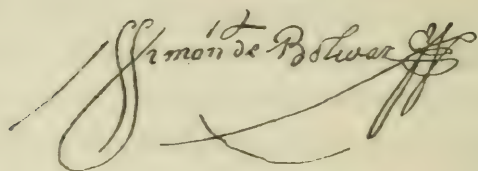 Simón de Bolivar